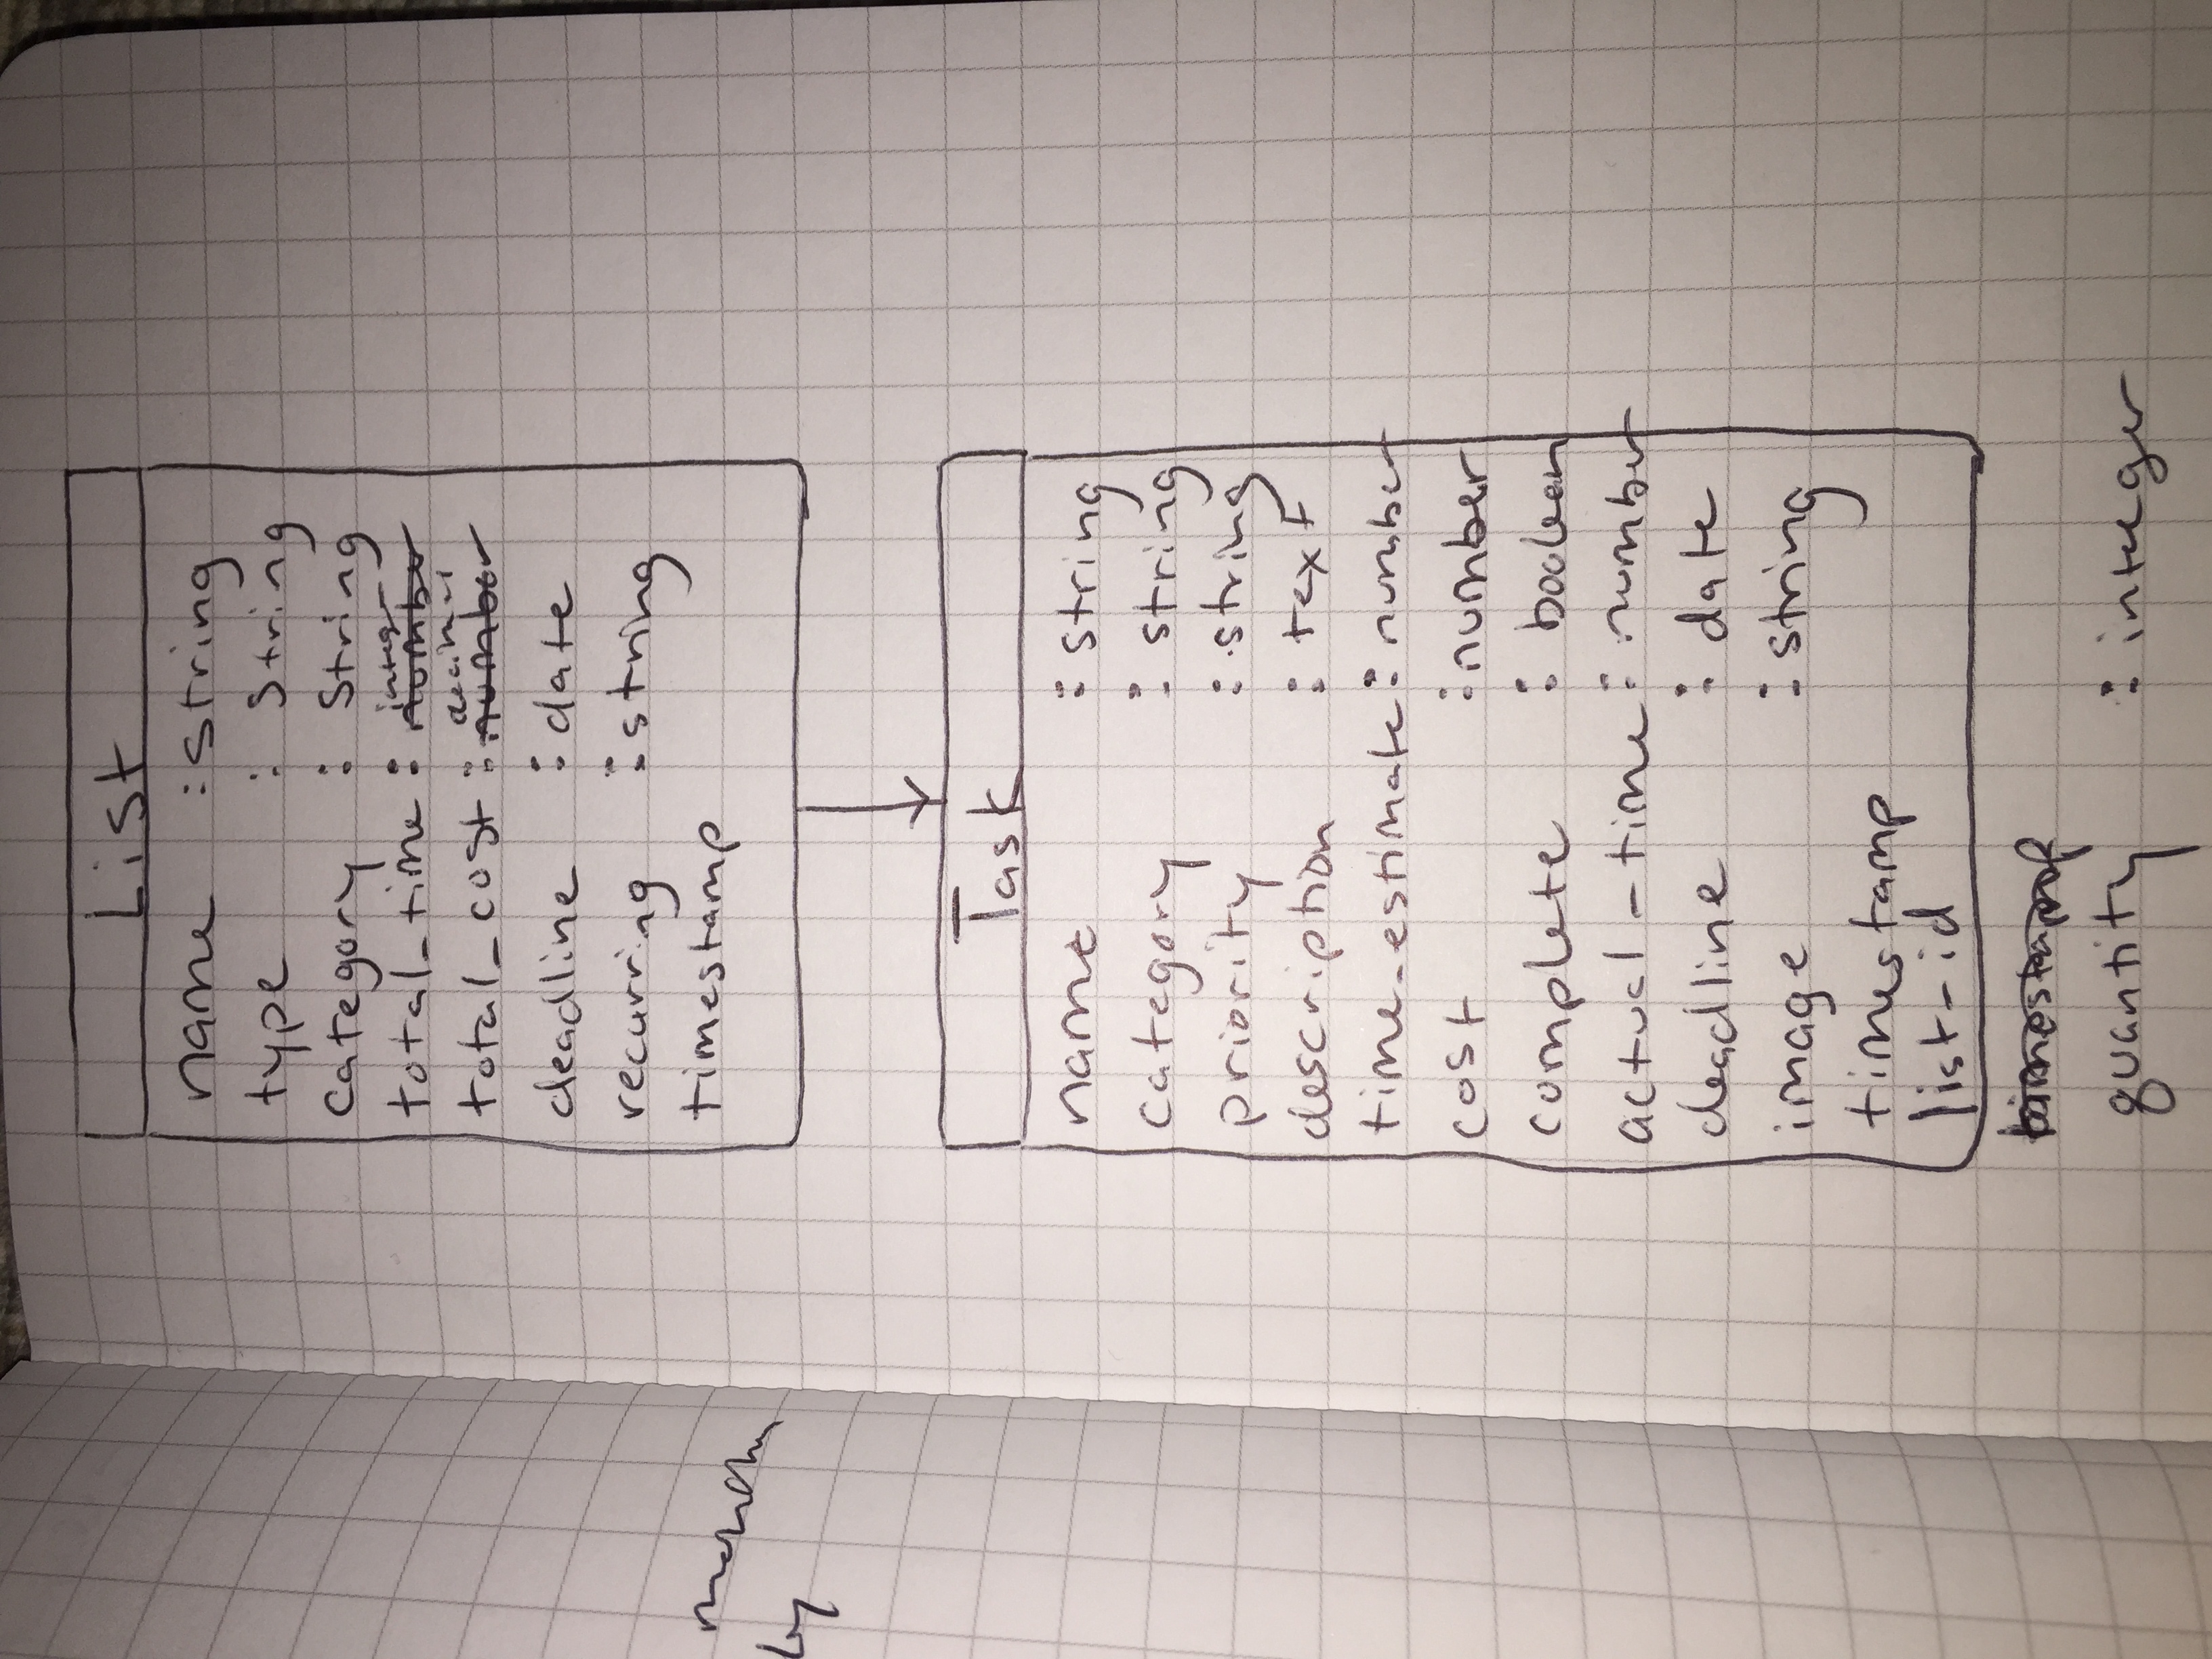 List
name : string
type : String
category : String
total_time : integer number
total_cost : decimal number
deadline : date
recurring : string
timestamp
Task
name : string
category : string
priority : string
description : text
time_estimate : number
cost : number
complete : boolean
actual_time : number
deadline : date
image : string
timestamp
list_id
timestamp
quantity : integer